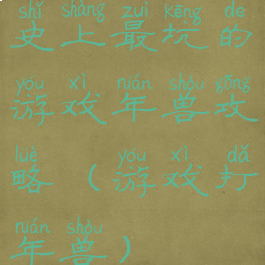 shǐ shàng zuì kēng de
史上最坑的
yóu xì nián shòu gōng
游戏年兽攻
lüè yóu xì dǎ
略(游戏打
nián shòu
年兽)